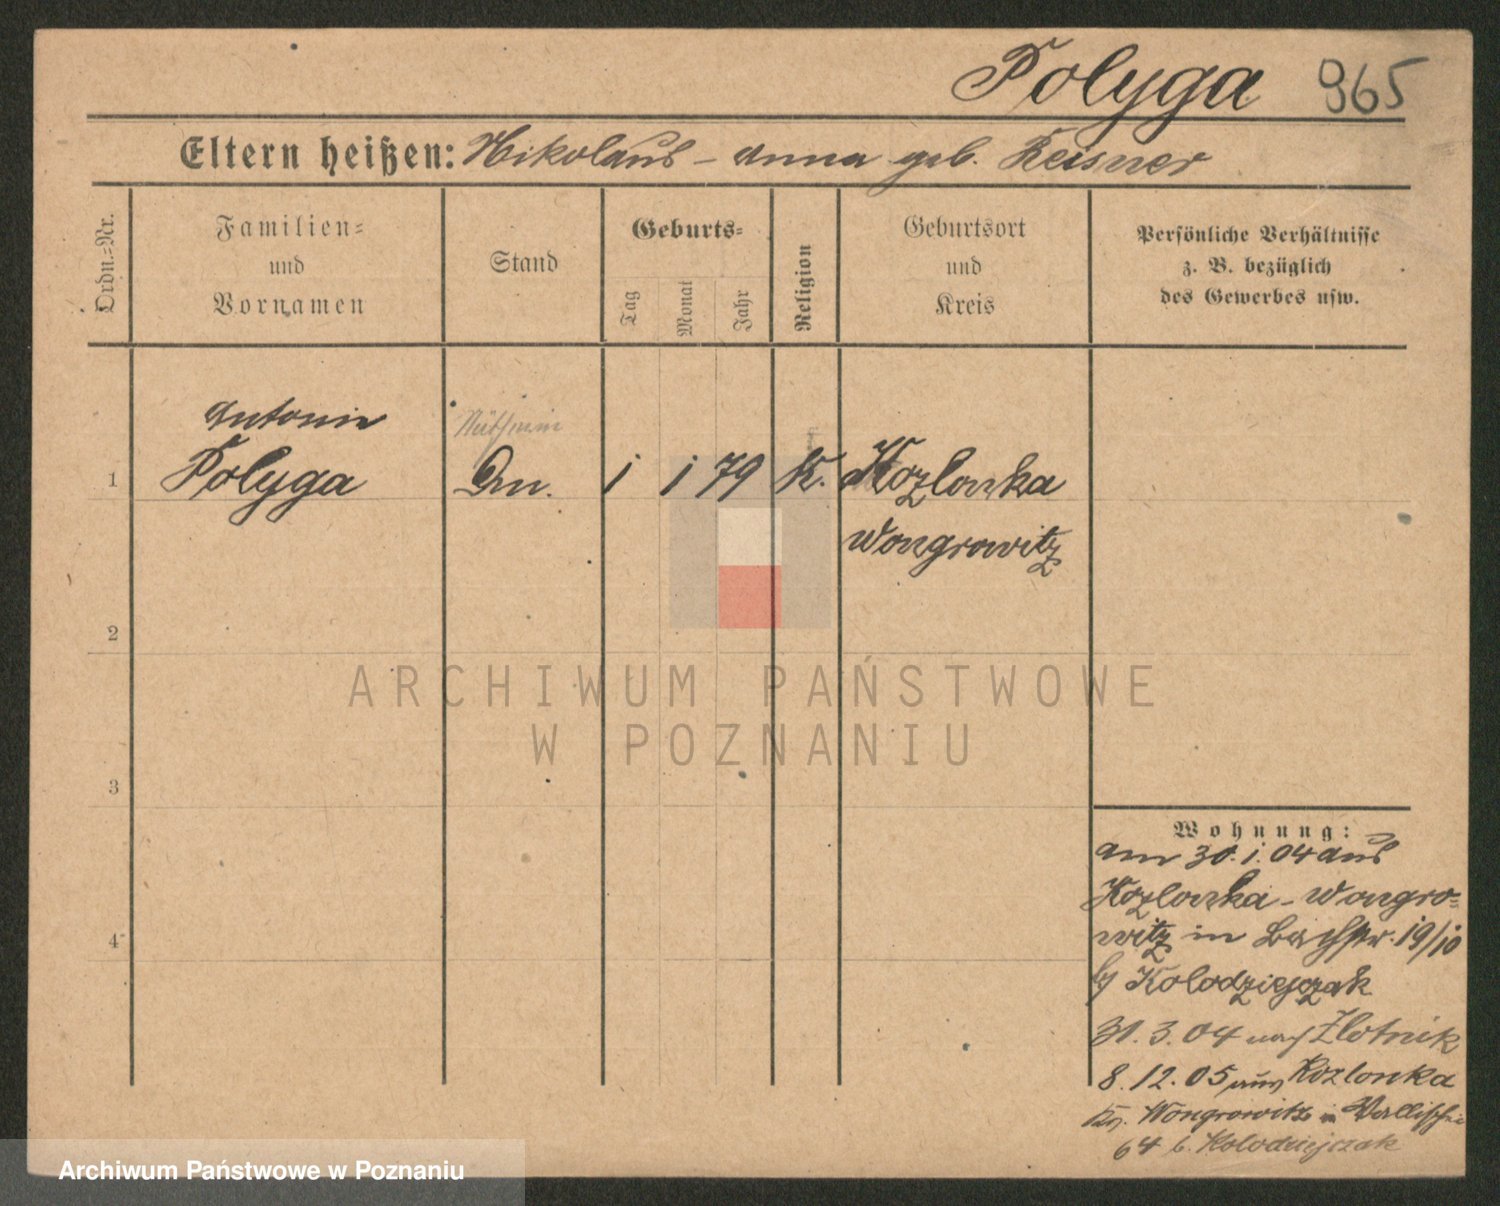 Polyga 965
Eltern heißen: Nikolaus – Anna geb. Reisner
Ordn.=Nr.
Familien=
und
Vornamen
Stand
Geburts=
Tag
Monat
Jahr
Religion
Geburtsort
und
Kreis
Persönliche Verhältnisse
z. B. bezüglich
des Gewerbes usw.
Antonie
1 Polyga 1 1 79 K. Kozlonka
Wongrowitz
2
3
4
ARCHIWUM PAŃSTWOWE
W POZNANIU
Wohnung:
am 30. 1. 04 aus
Kozlonka – Wongro=
witz in 19/10
b/ Kolodziejczak
31. 3. 04 nach Zlotnik
8. 12. 05 aus Kozlonka
Kr. Wongrowitz in Wallischei
64 b. Kolodziejczak
Archiwum Państwowe w Poznaniu